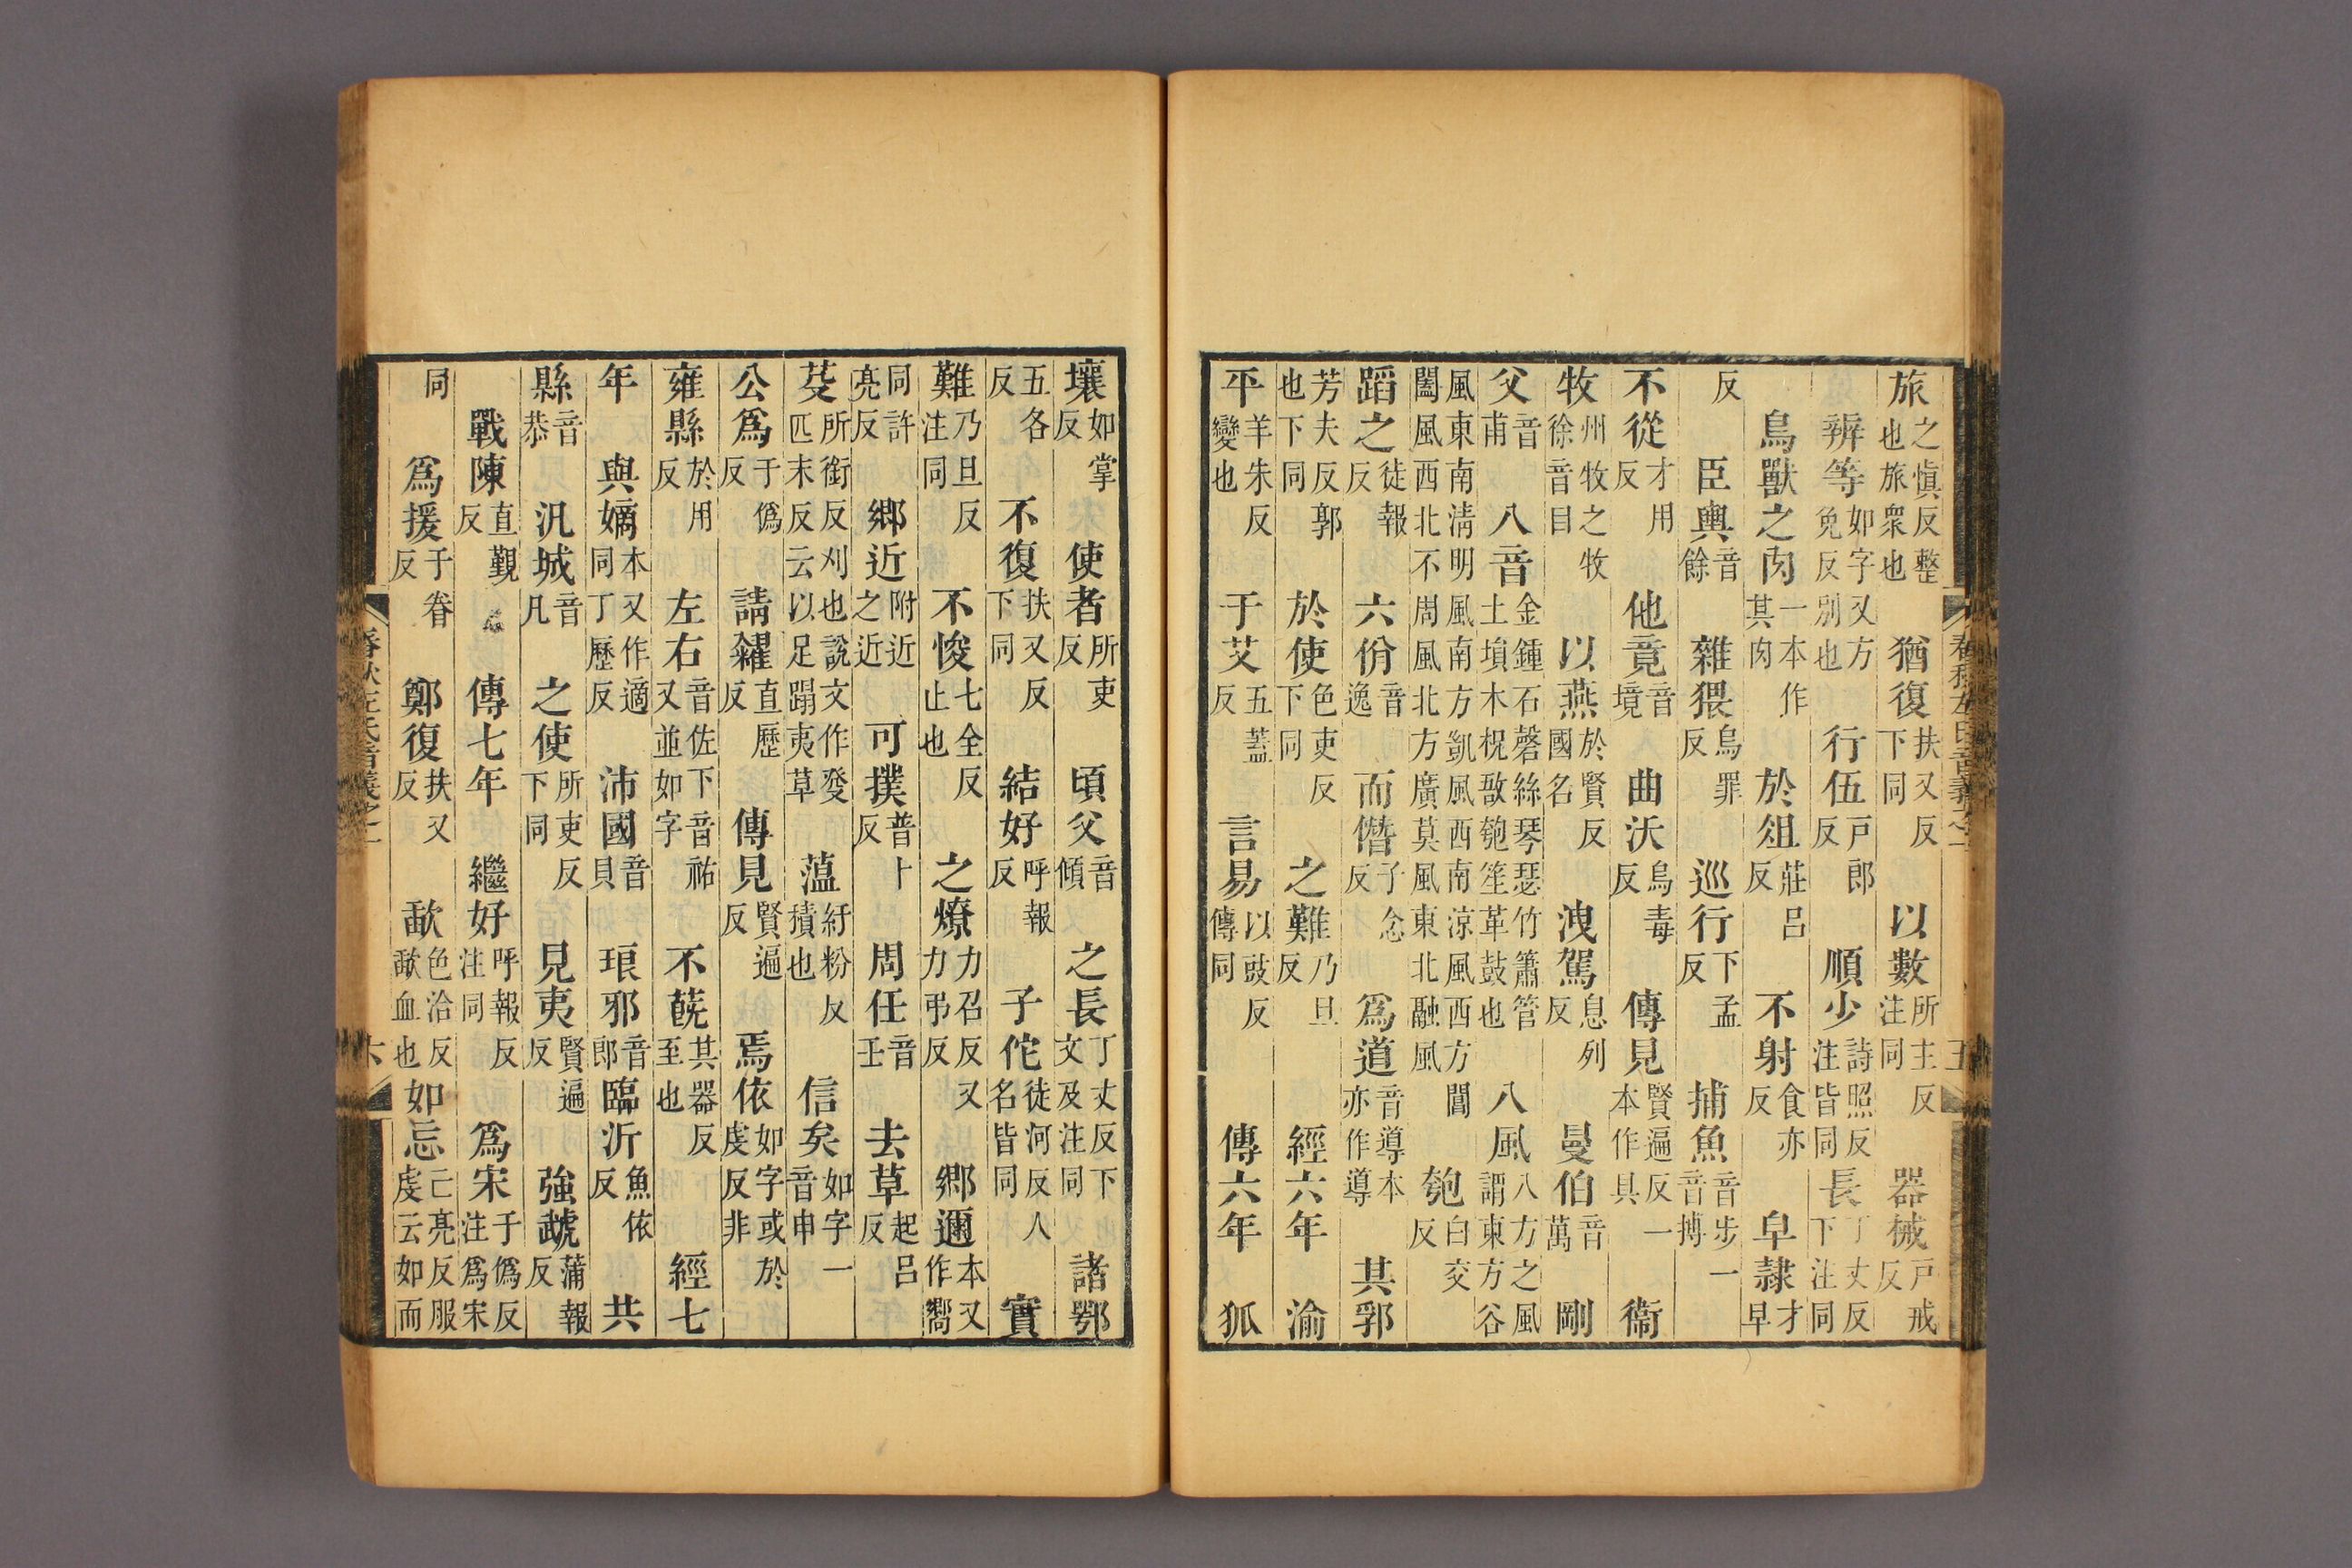 旅之慎反整也旅衆也 猶復扶又反下同 以數所主反注同 器械戸戒反
辨等如字又方免反別也 行伍戸郎反 順少詩照反注皆同 長丁丈反下注同
鳥獸之肉一本作其肉 於俎莊呂反 不射食亦反 皁隷才早
反 臣輿音餘 雜猥烏罪反 巡行下孟反 捕魚音步一音搏
不從才用反 他竟音境 曲沃烏毒反 傳見賢遍反一本作具 衞
牧州牧之牧徐音目 以燕於賢反國名 洩駕息列反 曼伯音萬 剛
父音甫 八音金鍾石磬絲琴瑟竹簫管土塤木柷敔匏笙革鼓也 八風謂八方之風東方谷
風東南清明風南方凱風西南涼風西方閶闔風西北不周風北方廣莫風東北融風 匏白交反
蹈之徒報反 六佾音逸 而僭子念反 爲道音導本亦作導 其郛
芳夫反郭也下同 於使色吏反下同 之難乃旦反 經六年 渝
平羊朱反變也 于艾五蓋反 言易以豉反傳同 傳六年 狐
春秋左氏音義之一 五
壤如掌反 使者所吏反 頃父音傾 之長丁丈反下文及注同 諸鄂
五各反 不復扶又反下同 結好呼報反 子佗徒河反人名皆同 實
難乃旦反注同 不悛七全反止也 之燎力召反又力弔反 鄉邇本又作嚮
同許亮反 鄉近附近之近 可撲普卜反 周任音壬 去草起呂反
芟所銜反刈也說文作癹匹末反云以足蹋夷草 薀紆粉反積也 信矣如字一音申
公爲于僞反 請糴直歷反 傳見賢遍反 焉依如字或於虔反非
雍縣於用反 左右音佐下音祐又並如字 不蔇其器反至也 經七
年 與嫡本又作適同丁歷反 沛國音貝 琅邪音郎 臨沂魚依反 共
縣音恭 汎城音凡 之使所吏反下同 見夷賢遍反 強虣蒲報反
戰陳直覲反 傳七年 繼好呼報反注同 爲宋于僞反注爲宋
同 爲援于眷反 鄭復扶又反 歃色洽反歃血也 如忘亡亮反服虔云如而
春秋左氏音義之一 六